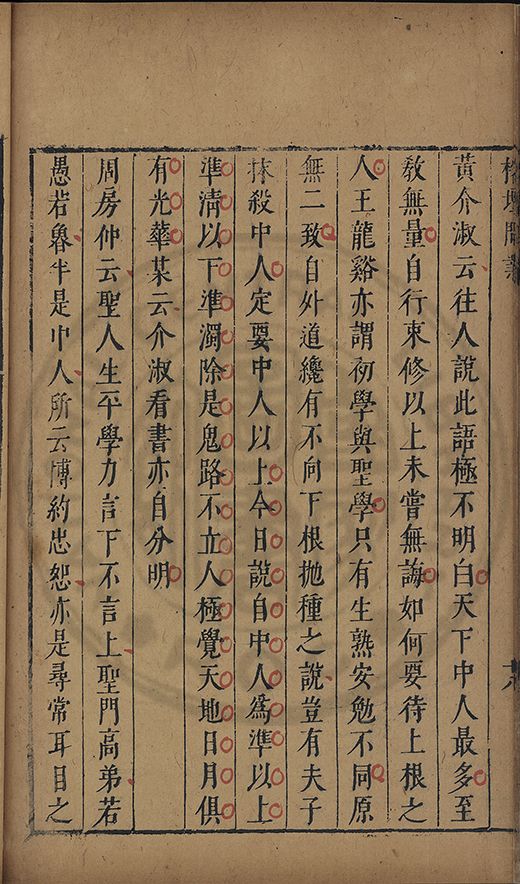 榕壇問業
十八
黃介淑云往人說此語極不明白天下中人最多至
敎無量自行束修以上未嘗無誨如何要待上根之
人王龍谿亦謂初學與聖學只有生熟安勉不同原
無二致自外道纔有不向下根抛種之說豈有夫子
抹殺中人定要中人以上今日說自中人爲準以上
準清以下準濁除是鬼路不立人極覺天地日月俱
有光華某云介淑看書亦自分明
周房仲云聖人生平學力言下不言上聖門高弟若
愚若魯半是中人所云博約忠恕亦是尋常耳目之